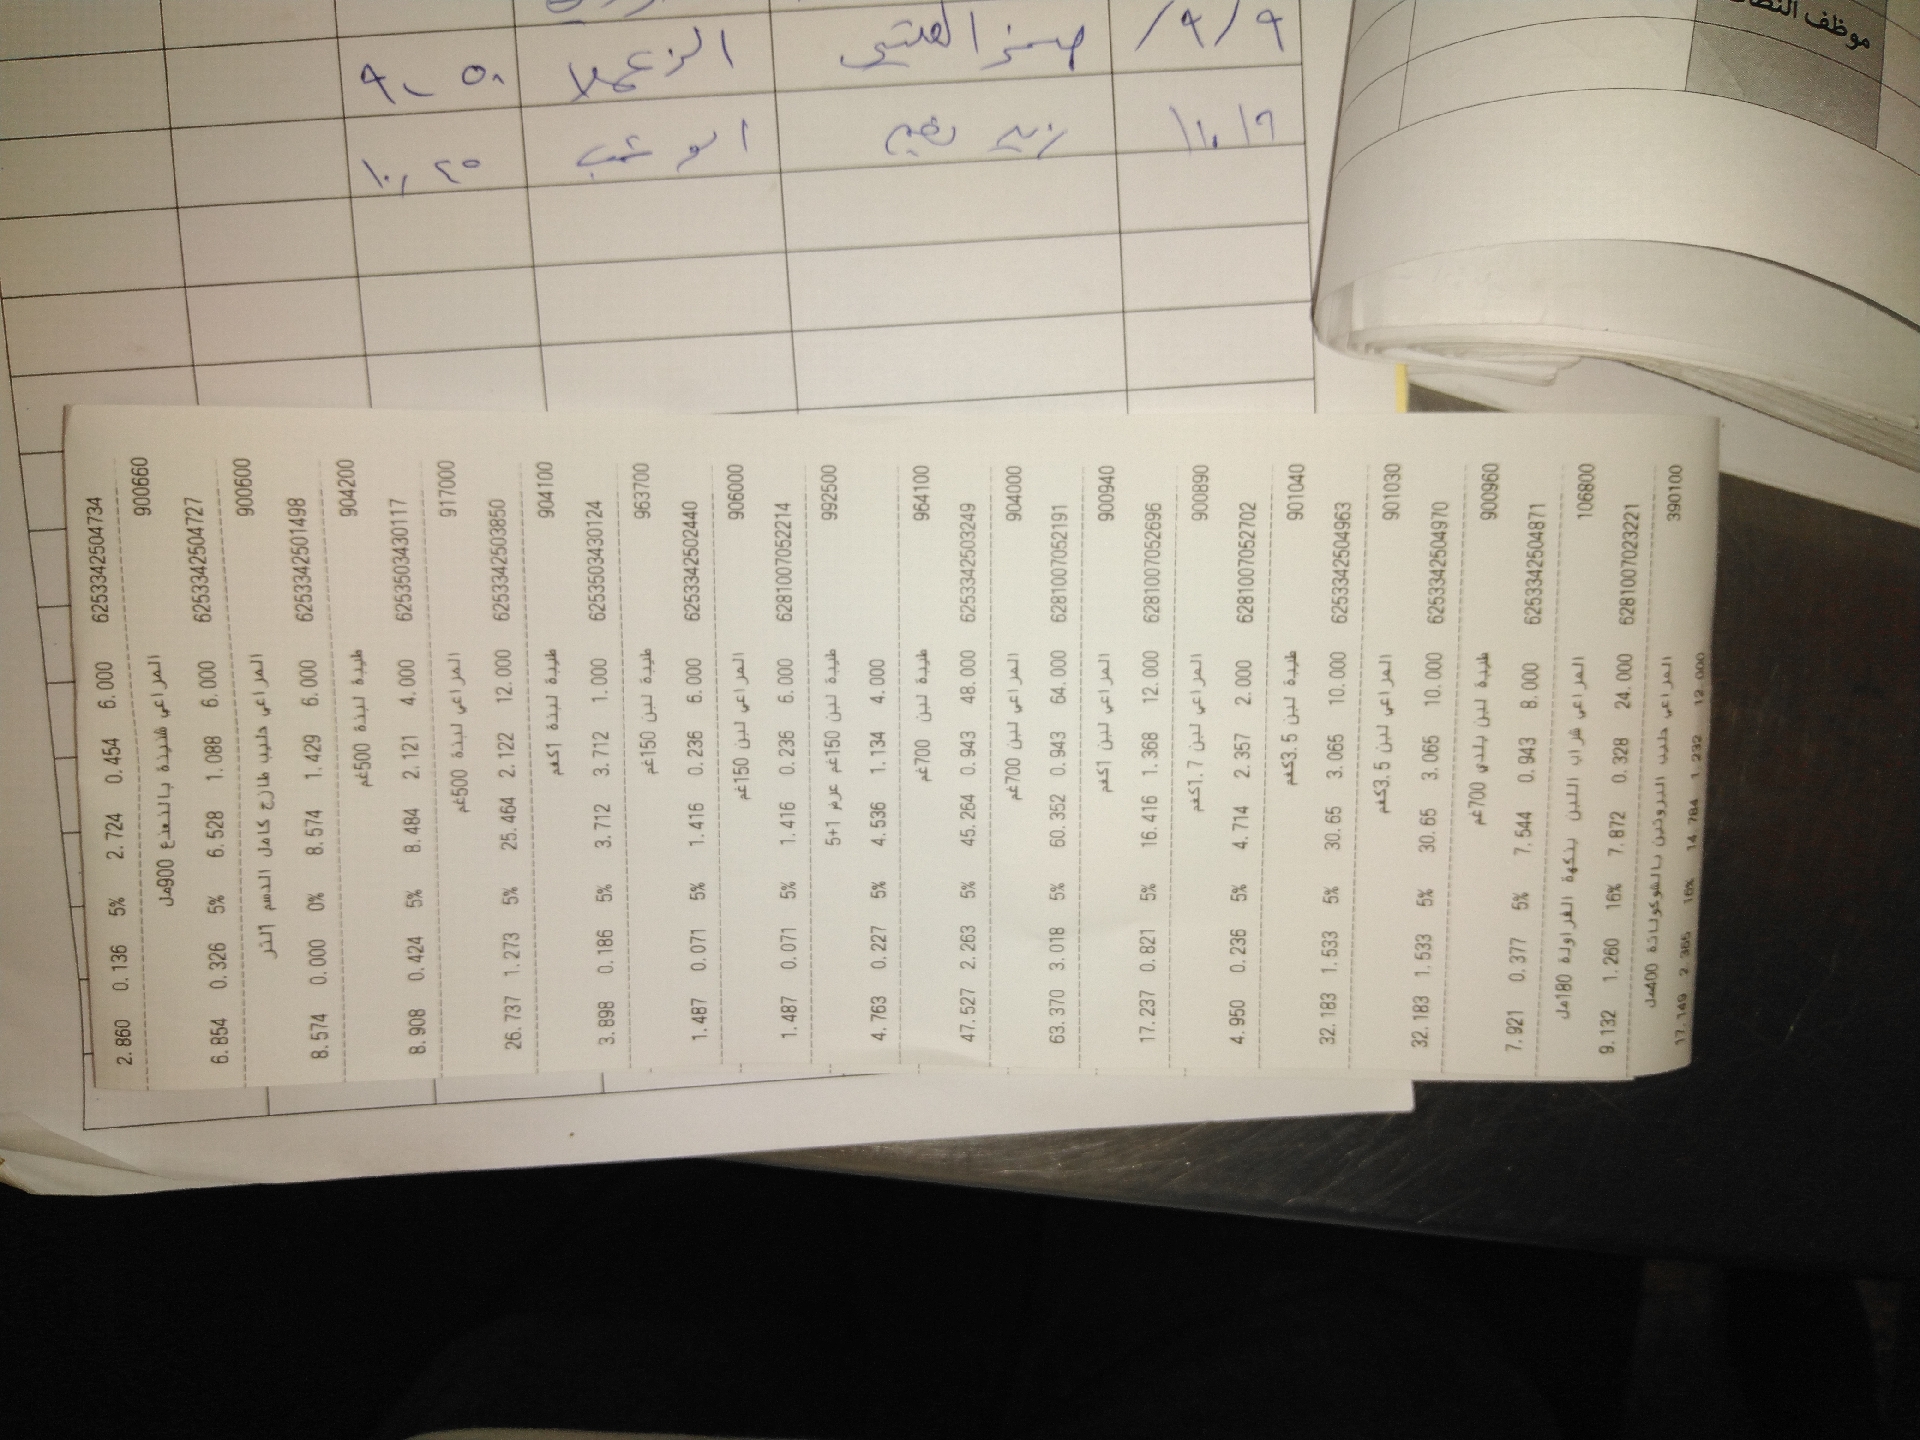 موظف النظا
٩/٩/
١٠/٦
٩,٥٠
١٠,٤٥
2.860 0.136 5% 2.724 0.454 6.000 6253342504734
المراعي شنينة بالنعنع 900مل 900660
6.854 0.326 5% 6.528 1.088 6.000 6253342504727
المراعي حليب طازج كامل الدسم التر 900600
8.574 0.000 0% 8.574 1.429 6.000 6253342501498
طيبة لبنة 500غم 904200
8.908 0.424 5% 8.484 2.121 4.000 6253503430117
المراعي لبنة 500غم 917000
26.737 1.273 5% 25.464 2.122 12.000 6253342503850
طيبة لبنة 1كغم 904100
3.898 0.186 5% 3.712 3.712 1.000 6253503430124
طيبة لبن 150غم 963700
1.487 0.071 5% 1.416 0.236 6.000 6253342502440
المراعي لبن 150غم 906000
1.487 0.071 5% 1.416 0.236 6.000 6281007052214
طيبة لبن 150غم عرض 1+5 992500
4.763 0.227 5% 4.536 1.134 4.000
طيبة لبن 700غم 964100
47.527 2.263 5% 45.264 0.943 48.000 6253342503249
المراعي لبن 700غم 904000
63.370 3.018 5% 60.352 0.943 64.000 6281007052191
المراعي لبن 1كغم 900940
17.237 0.821 5% 16.416 1.368 12.000 6281007052696
المراعي لبن 1.7كغم 900890
4.950 0.236 5% 4.714 2.357 2.000 6281007052702
طيبة لبن 3.5كغم 901040
32.183 1.533 5% 30.65 3.065 10.000 6253342504963
المراعي لبن 3.5كغم 901030
32.183 1.533 5% 30.65 3.065 10.000 6253342504970
طيبة لبن بلدي 700غم 900960
7.921 0.377 5% 7.544 0.943 8.000 6253342504871
المراعي شراب اللبن بنكهة الفراولة 180مل 106800
9.132 1.260 16% 7.872 0.328 24.000 6281007023221
المراعي حليب البروتين بالشوكولاتة 400مل 390100
17.149 2.365 16% 14.784 1.232 12.000